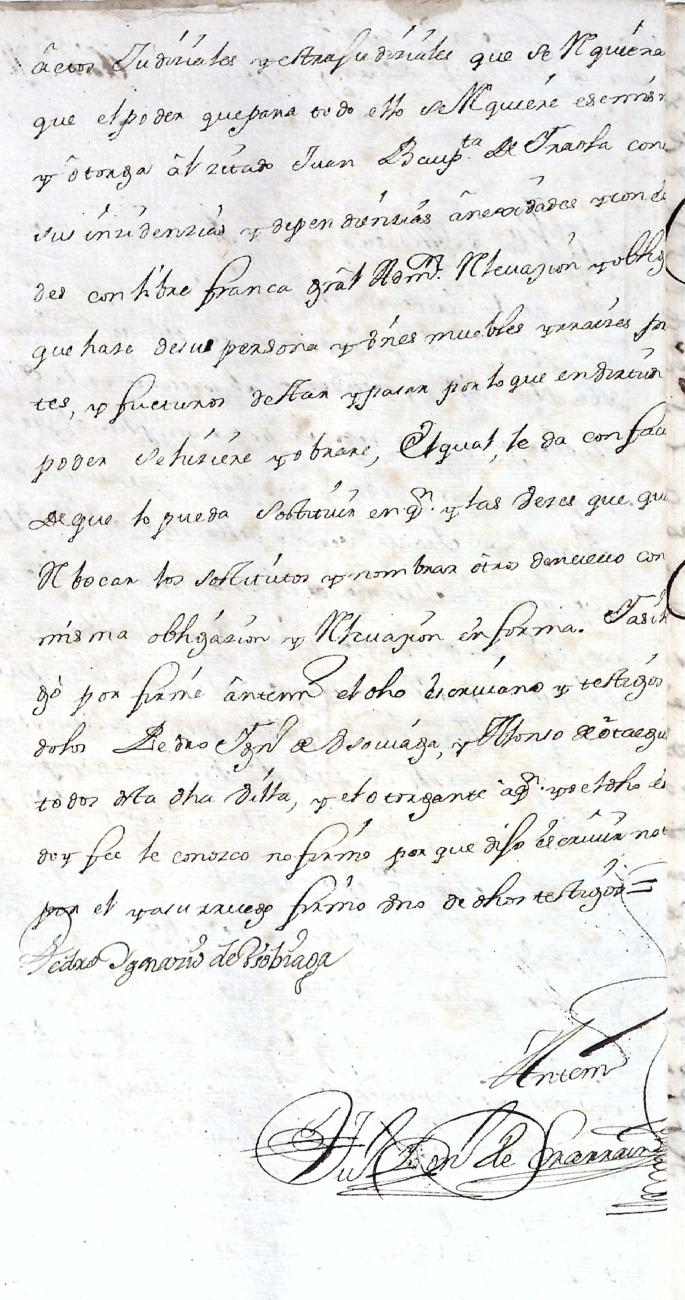 actos Judiciales y estrajudiciales que se Rquiera
que el poder que para todo ello se Rquiere ese mis
y otorga al zitado Juan Baup.ta de con
sus inzidenzias y dependienzias anexidades y con
des con libre franca gral Adm.on Rlevazion y oblig
que haze de su persona y vnes muebles y rraizes
tes, y fucturos de estar y pasar por lo que en virtud
poder se hiziere y obrare, El qual, le da con facu
de que lo pueda sostituir en q.n y las vezes que qu
Rbocar los sostitutos y nombrar otros de nuevo con
misma obligazion y Rlevazion en forma. Y asi
gò por firme antemi el dho escrivano y testigos
dolos Pedro Ign.o de y Alonso de otaegu
todos desta dha villa, y el otorgante aq.n yo el dho es
doy fee le conozco no firmo por que dijo escrivir no
por el y a su rruego firmo vno de dhos testigos =
Pedro Ignazio de
Antemi
de